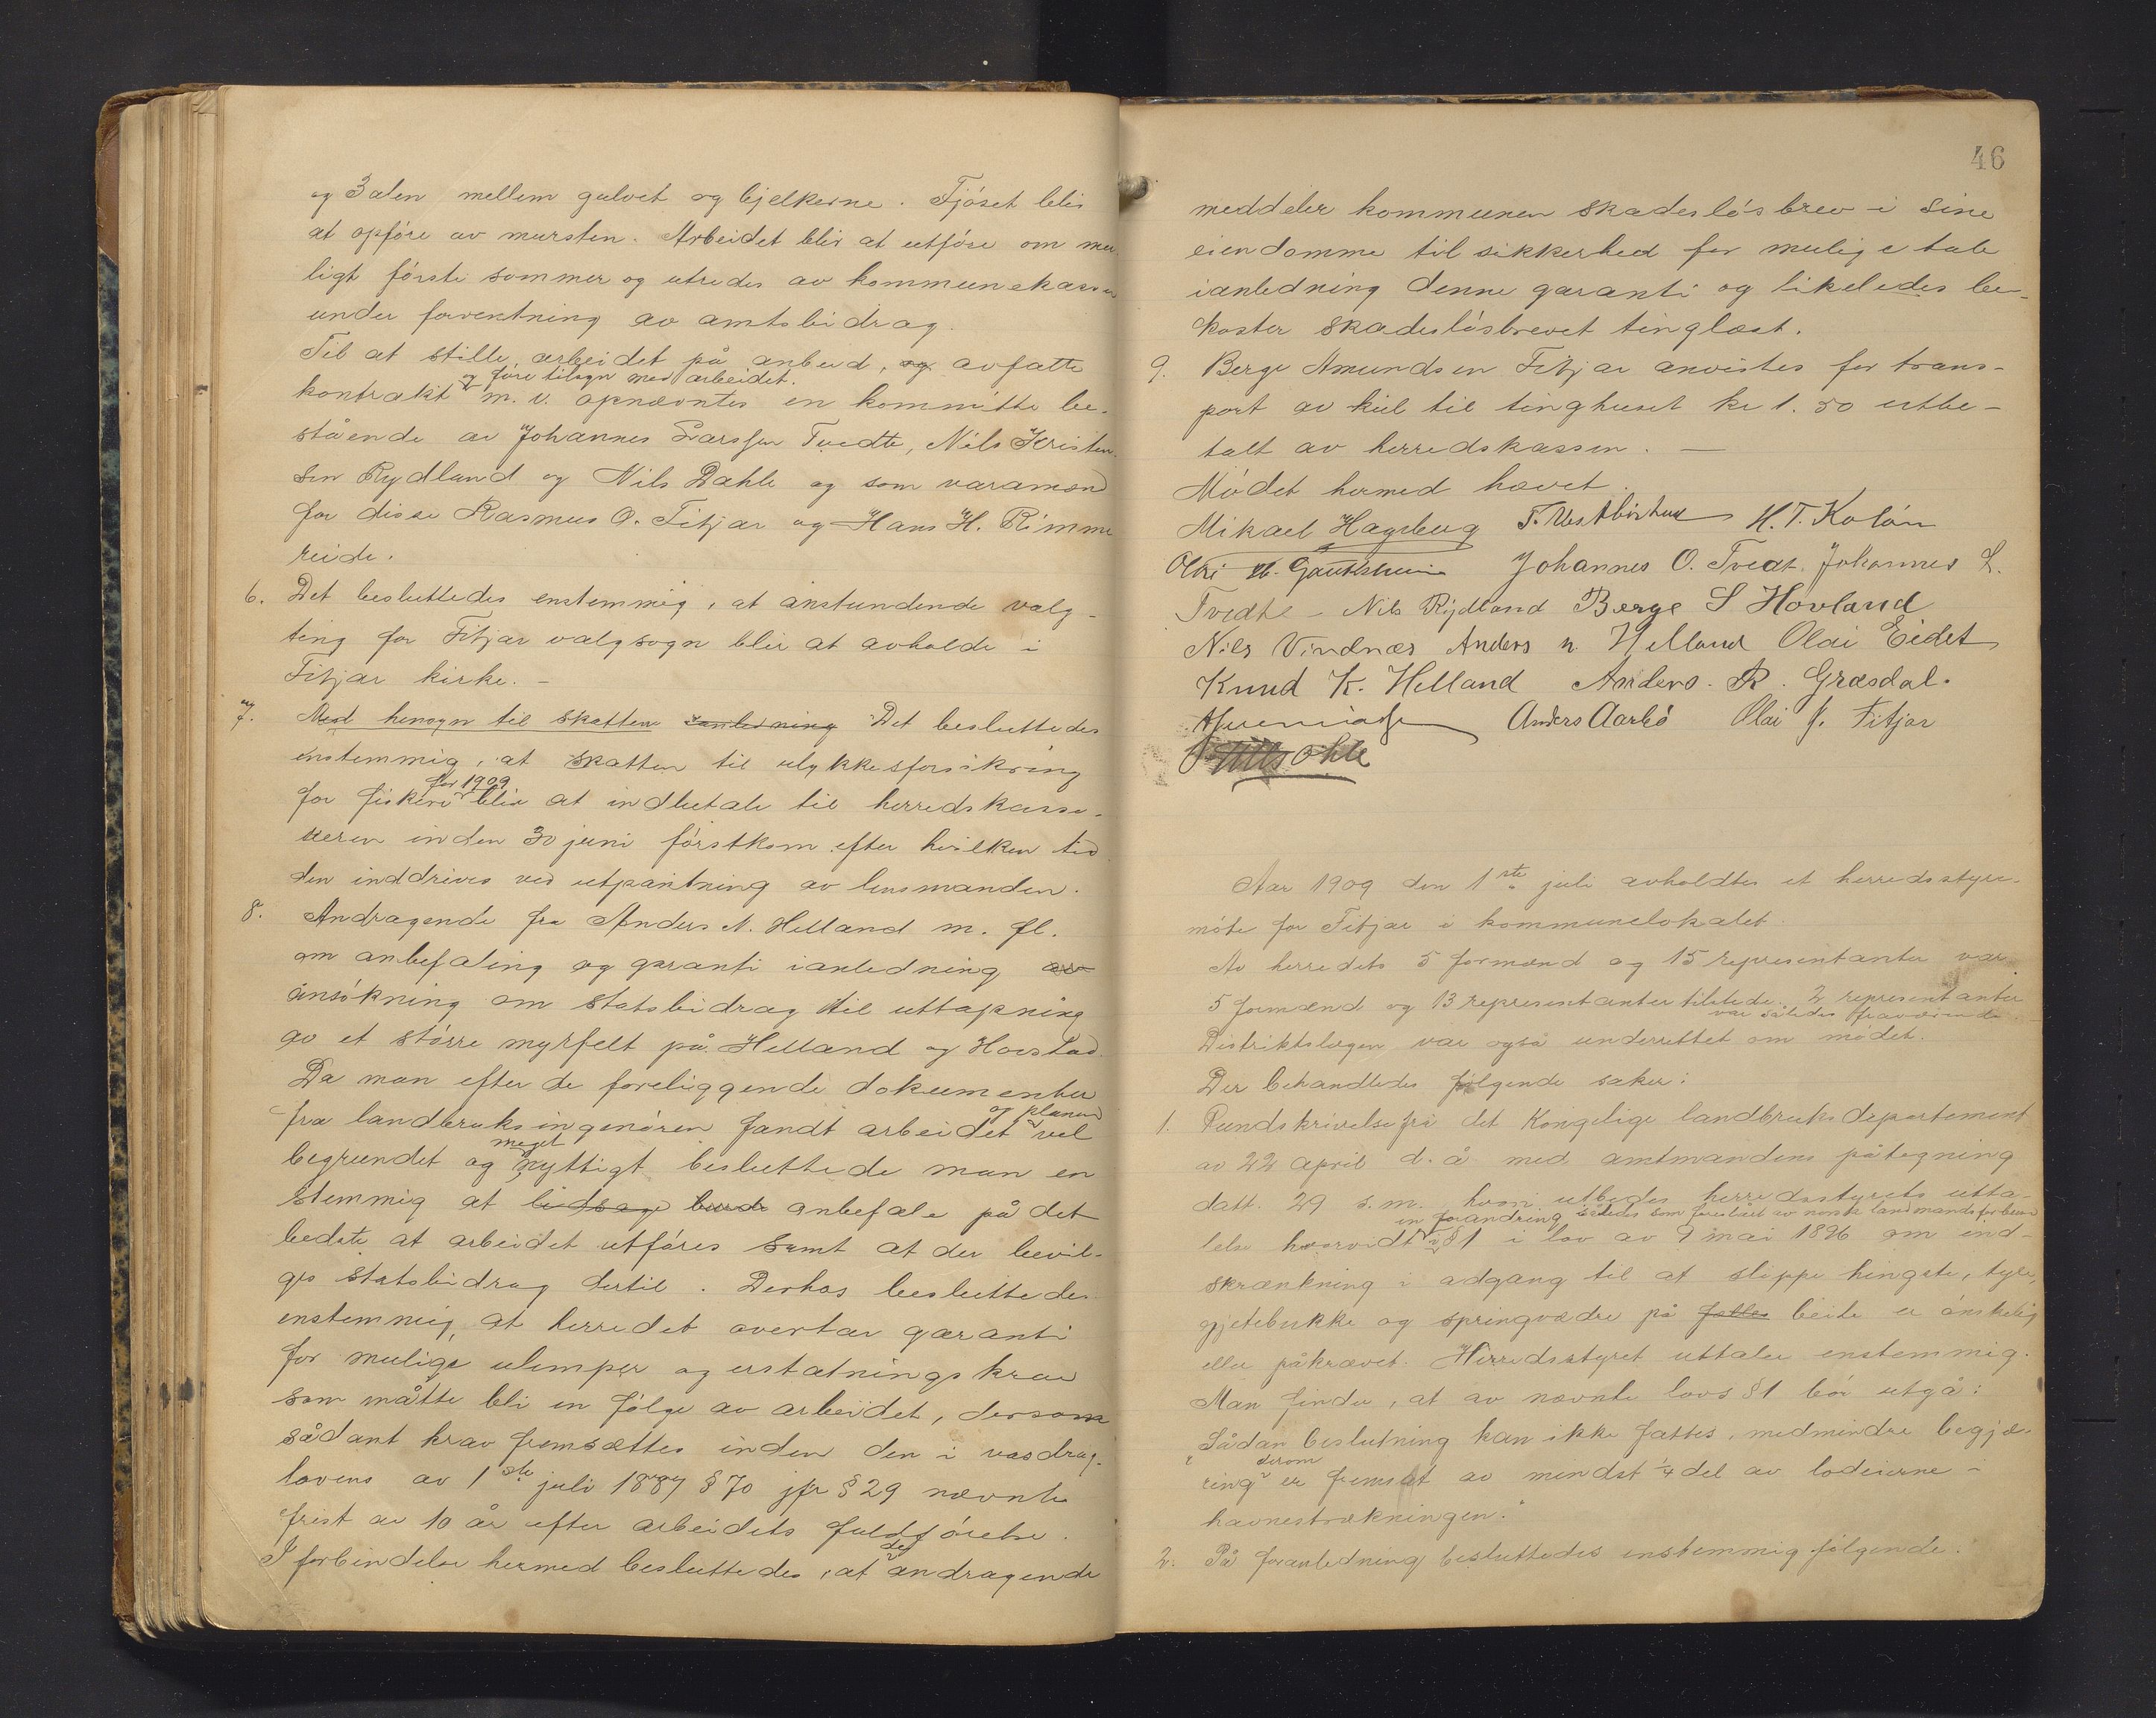 og 3 alen mellem gulvet og bjelkerne. Fjöset blir
at opföre av mursten. Arbeidet blir at utföre om mu-
ligt förste sommer og utredes av kommunekassen
under forventning av amtsbidrag.
Til at stille arbeidet på anbud, og avfatte
og före tilsyn med arbeidet.
kontrakt m. v. opnævntes en kommitte be-
stående av Johannes Larssen Tvedte, Nils Kristen-
sen Rydland og Nils Dahle og som varamænd
for disse Rasmus O. Fitjar og Hans H. Rimme-
reide.
6. Det besluttedes enstemmig, at anstundende valg-
ting for Fitjar valgsogn blir at avholde i
Fitjar kirke. -
7. Med hensyn til skatten ianledning Det besluttedes
enstemmig, at skatten til ulykkesforsikring
for 1909
for fiskere blir at indbetale til herredskasse-
reren inden 30 juni förstkom. efter hvilken tid
den inddrives ved utpantning av lensmanden.
8. Andragende fra Anders N. Helland m. fl.
om anbefaling og garanti ianledning av
ansökning om statsbidrag til uttapning
av et större myrfelt på Helland og Hovstad.
Da man efter de foreliggende dokumenter
og planen
fra landbruksingenören fandt arbeidet vel
meget
begrundet og nyttigt besluttede man en
stemmig at ledsage burde anbefale på det
bedste at arbeidet utföres samt at der bevil-
ges statsbidrag dertil. Derhos besluttedes
enstemmig, at herredet overtar garanti
for mulige ulemper og erstatningskrav
som måtte bli en fölge av arbeidet, dersom
sådant krav fremsættes inden den i vasdrag-
lovens av 1ste juli 1887 § 70 jfr § 29 nævnte
frist av 10 år efter arbeidets fuldförelse.
I forbindelse hermed besluttedes, at andragende
46
meddeler kommunen skadeslösbrev i sine
eiendomme til sikkerhed for mulige tab
ianledning denne garanti og likeledes be-
koster skadeslösbrevet tinglæst.
9. Berge Amundsen Fitjar anvistes for trans-
port av kul til tinghuset kr 1.50 utbe-
talt av herredskassen. -
Mödet hermed hævet.
Mikael Hagsberg T. Vestbøstad H. T. Kolön
M. Johannes O. Tvedt. Johannes L.
Tvedte - Nils Rydland Berge S Hovland
Nils Vindnæs Anders N. Helland Olai Eidet
Knud K. Helland Anders. R. Græsdal.
Anders Aarbö Olai J. Fitjar
Aar 1909 den 1ste juli avholdtes et herredsstyre-
möte for Fitjar i kommunelokalet.
Av herredets 5 formænd og 15 representanter var
5 formænd og 13 representanter tilstede. 2 representanter
var således fraværende.
Distriktslægen var også underrettet om mödet.
Der behandledes fölgende saker:
1. Rundskrivelse frå det Kongelige landbruksdepartement
av 22 april d. å med amtmandens påtegning
datt. 29 s. m. hvori utbedes herredsstyrets utta-
en forandring således som foreslået av norsk landmandsforbund
lelse hvorvidt i § 1 i lov av 9 mai 1896 om ind-
skrænkning i adgang til at slippe hingste, tyre,
gjetebukke og springvædre på fælles beite er önskelig
eller påkrævet. Herredsstyret uttaler enstemmig.
Man finder, at av nævnte lovs § 1 bör utgå:
"Sådan beslutning kan ikke fattes, medmindre begjæ-
derom
ring er fremsat av mindst 1/4 del av lodeierne i
havnestrækningen."
2. På foranledning besluttedes enstemmig fölgende.